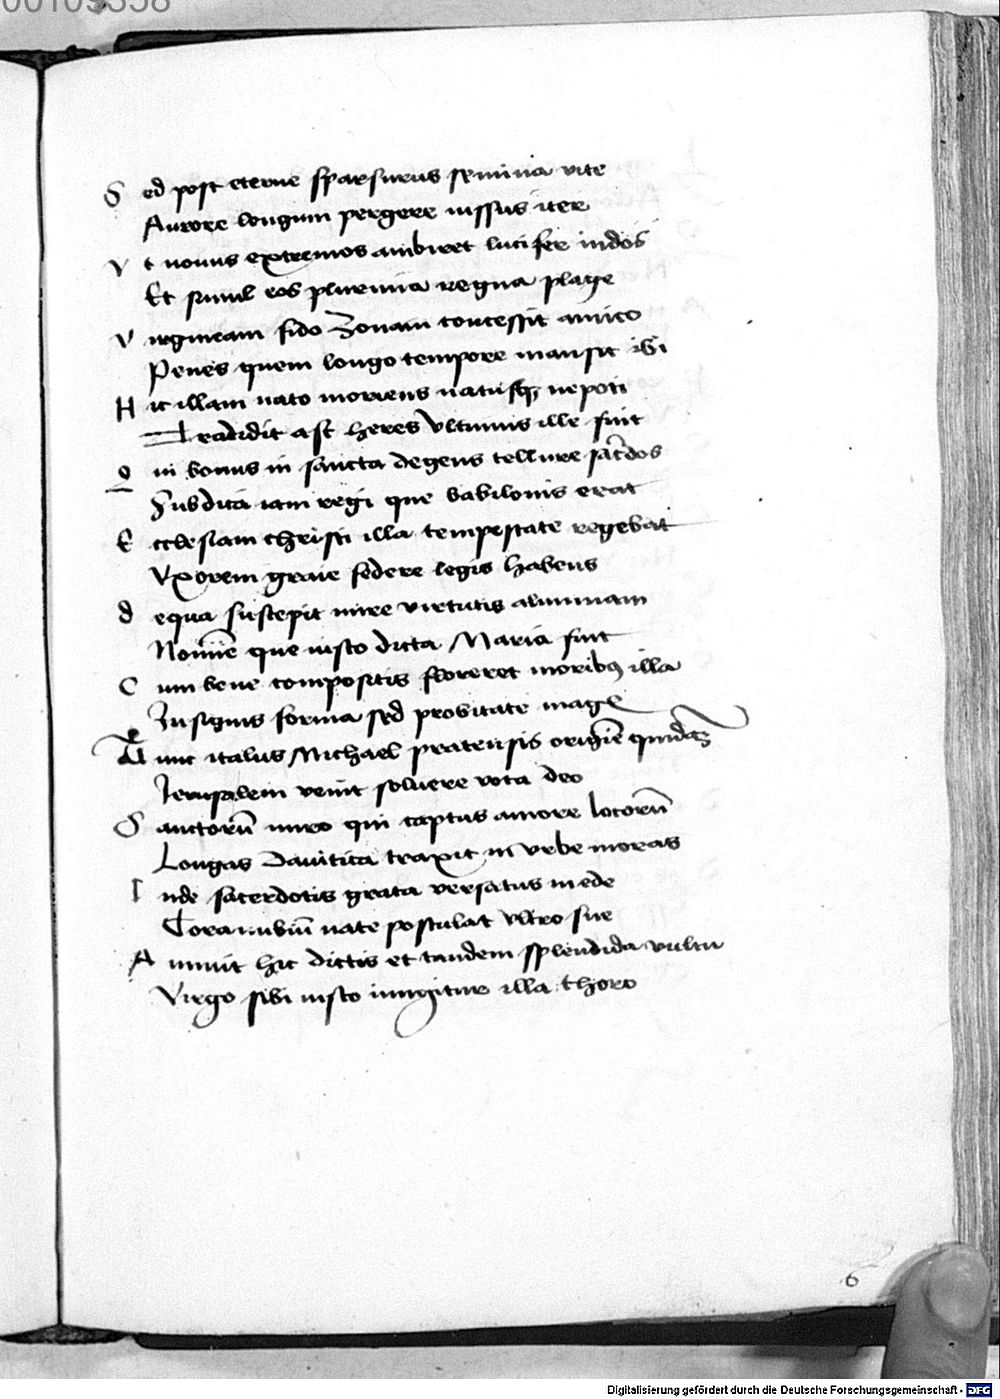 00109358
Sed post eterne sparsurus semina vite
Aurore longum pergere iussus iter
Vt nouus extremos ambiret lucifer indos
Et simul eos plurima regna plage
Virgineam fido Zonam concessit amico
Penes quem longo tempore mansit ibi
Hic illam nato moriens natusq; nepoti
Tradidit ast heres Vltimus ille fuit
Qui bonus in sancta degens tellure sac̄dos
Subdita iam regi que babilonis erat
Ecclesiam christi illa tempestate regebat
Vxorem graue federe legis habens
de qua suscepit mire virtutis alumnam
Nomīe que iusto dicta Maria fuit
Cum bene compositis floreret moribꝰ illa
Insignis forma sed probitate mage
Tunc italus Michael pratensis origīe quidaꝫ
Jerusalem venit soluere vota deo
Sanctorū miro qui captus amore locorū
Longas Dauitica traxit in vrbe moras
Inde sacerdotis grata versatus in ede
Conubiū nate postulat vltro sue
Annuit hic dictis et tandem splendida vultu
Virgo sibi iusto iungitur illa thoro
6
Digitalisierung gefördert durch die Deutsche Forschungsgemeinschaft - DFG